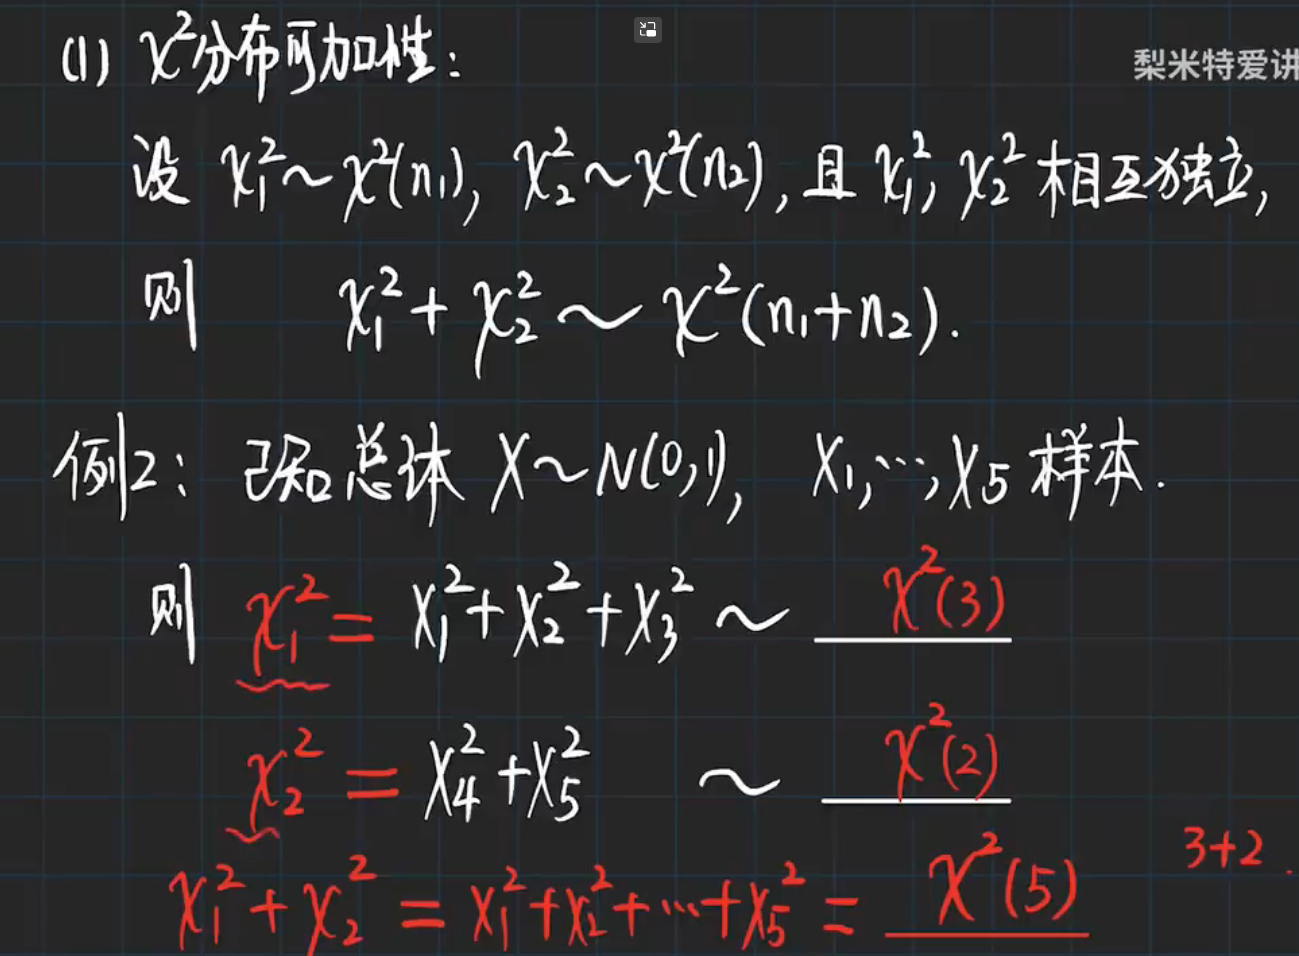 (1) χ²分布可加性:
梨米特爱讲
设 χ₁²~χ²(n₁), χ₂²~χ²(n₂), 且 χ₁², χ₂² 相互独立,
则 χ₁²+χ₂²~χ²(n₁+n₂).
例2: 已知总体 X~N(0,1), X₁,…,X₅ 样本.
则 χ₁² = X₁²+X₂²+X₃² ~ χ²(3)
χ₂² = X₄²+X₅² ~ χ²(2)
3+2.
χ₁²+χ₂² = X₁²+X₂²+…+X₅² = χ²(5)